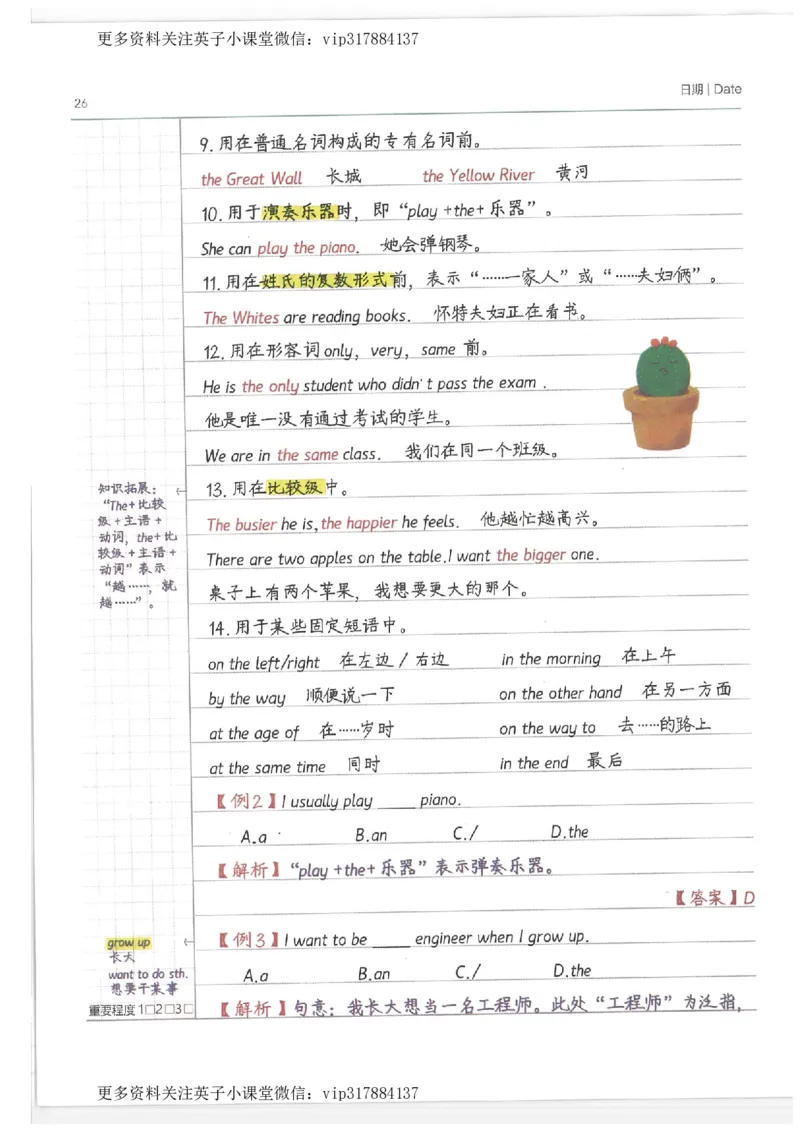 更多资料关注英子小课堂微信：vip317884137
日期 | Date
26
9. 用在普通名词构成的专有名词前。
the Great Wall 长城 the Yellow River 黄河
10. 用于演奏乐器时，即“play +the+ 乐器”。
She can play the piano. 她会弹钢琴。
11. 用在姓氏的复数形式前，表示“……一家人”或“……夫妇俩”。
The Whites are reading books. 怀特夫妇正在看书。
12. 用在形容词 only，very，same 前。
He is the only student who didn't pass the exam .
他是唯一没有通过考试的学生。
We are in the same class. 我们在同一个班级。
知识拓展：
“The+比较
级 + 主语 +
动词，the+比
较级 + 主语 +
动词”表示
“越……，就
越……”。
13. 用在比较级中。
The busier he is, the happier he feels. 他越忙越高兴。
There are two apples on the table. I want the bigger one.
桌子上有两个苹果，我想要更大的那个。
14. 用于某些固定短语中。
on the left/right 在左边 / 右边 in the morning 在上午
by the way 顺便说一下 on the other hand 在另一方面
at the age of 在……岁时 on the way to 去……的路上
at the same time 同时 in the end 最后
【例2】I usually play _____ piano.
A.a B.an C./ D.the
【解析】“play +the+ 乐器”表示弹奏乐器。
【答案】D
grow up
长大
want to do sth.
想要干某事
【例3】I want to be _____ engineer when I grow up.
A.a B.an C./ D.the
【解析】句意：我长大想当一名工程师。此处“工程师”为泛指，
重要程度 1□2□3□
更多资料关注英子小课堂微信：vip317884137